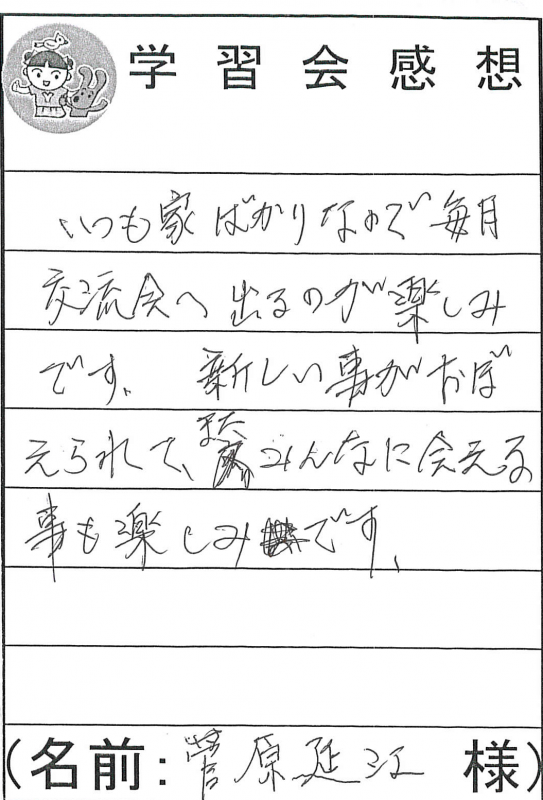 学習会感想
いつも家ばかりなので毎月
交流会へ出るのが楽しみ
です、新しい事がおぼ
えられて、またみんなに会える
事も楽しみです、
(名前:菅原延江様)